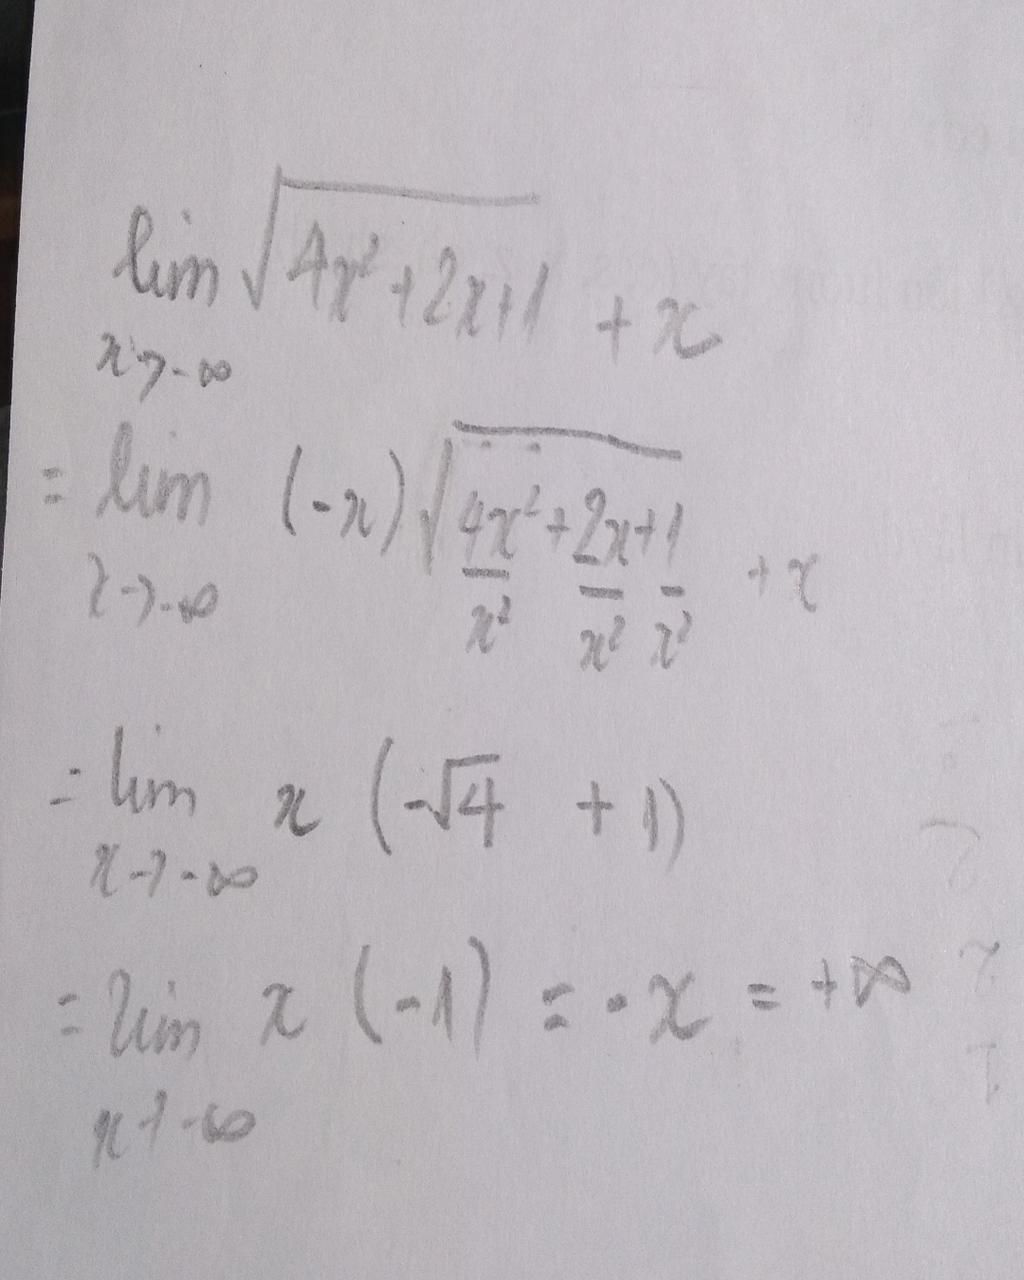 lim √(4x²+2x+1) + x
x→-∞
= lim (-x) √(4x²/x² + 2x/x² + 1/x²) + x
x→-∞
= lim x (-√4 + 1)
x→-∞
= lim x (-1) = -x = +∞
x→-∞